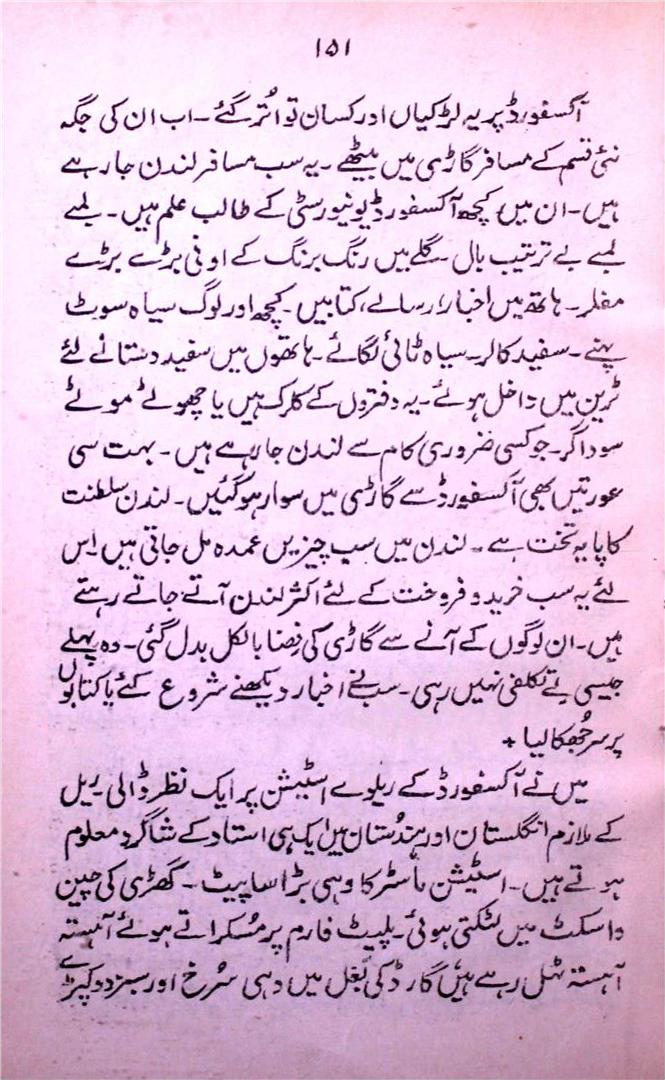 ۱۵۱
آکسفورڈ پر یہ لڑکیاں اور کسان تو اُتر گئے۔ اب ان کی جگہ
نئی قسم کے مسافر گاڑی میں بیٹھے۔ یہ سب مسافر لندن جا رہے
ہیں۔ ان میں کچھ آکسفورڈ یونیورسٹی کے طالب علم ہیں۔ لمبے
لمبے بے ترتیب بال۔ گلے میں رنگ برنگ کے اونی بڑے بڑے
مفلر۔ ہاتھ میں اخبار، رسالے، کتابیں۔ کچھ اور لوگ سیاہ سوٹ
پہنے۔ سفید کالر۔ سیاہ ٹائی لگائے۔ ہاتھوں میں سفید دستانے لئے
ٹرین میں داخل ہوئے۔ یہ دفتروں کے کلرک ہیں یا چھوٹے موٹے
سوداگر۔ جو کسی ضروری کام سے لندن جا رہے ہیں۔ بہت سی
عورتیں بھی آکسفورڈ سے گاڑی میں سوار ہو گئیں۔ لندن سلطنت
کا پایہ تخت ہے۔ لندن میں سب چیزیں عمدہ مل جاتی ہیں اس
لئے یہ سب خرید و فروخت کے لئے اکثر لندن آتے جاتے رہتے
ہیں۔ ان لوگوں کے آنے سے گاڑی کی فضا بالکل بدل گئی۔ وہ پہلے
جیسی بے تکلفی نہیں رہی۔ سب نے اخبار دیکھنے شروع کئے یا کتابوں
پر سر جُھکا لیا +
میں نے آکسفورڈ کے ریلوے اسٹیشن پر ایک نظر ڈالی ریل
کے ملازم انگلستان اور ہندُستان میں ایک ہی استاد کے شاگرد معلوم
ہوتے ہیں۔ اسٹیشن ماسٹر کا وہی بڑا سا پیٹ۔ گھڑی کی چین
واسکٹ میں لٹکتی ہوئی۔ پلیٹ فارم پر مُسکراتے ہوئے آہستہ
آہستہ ٹہل رہے ہیں گارڈ کی بغل میں وہی سُرخ اور سبز دو کپڑے